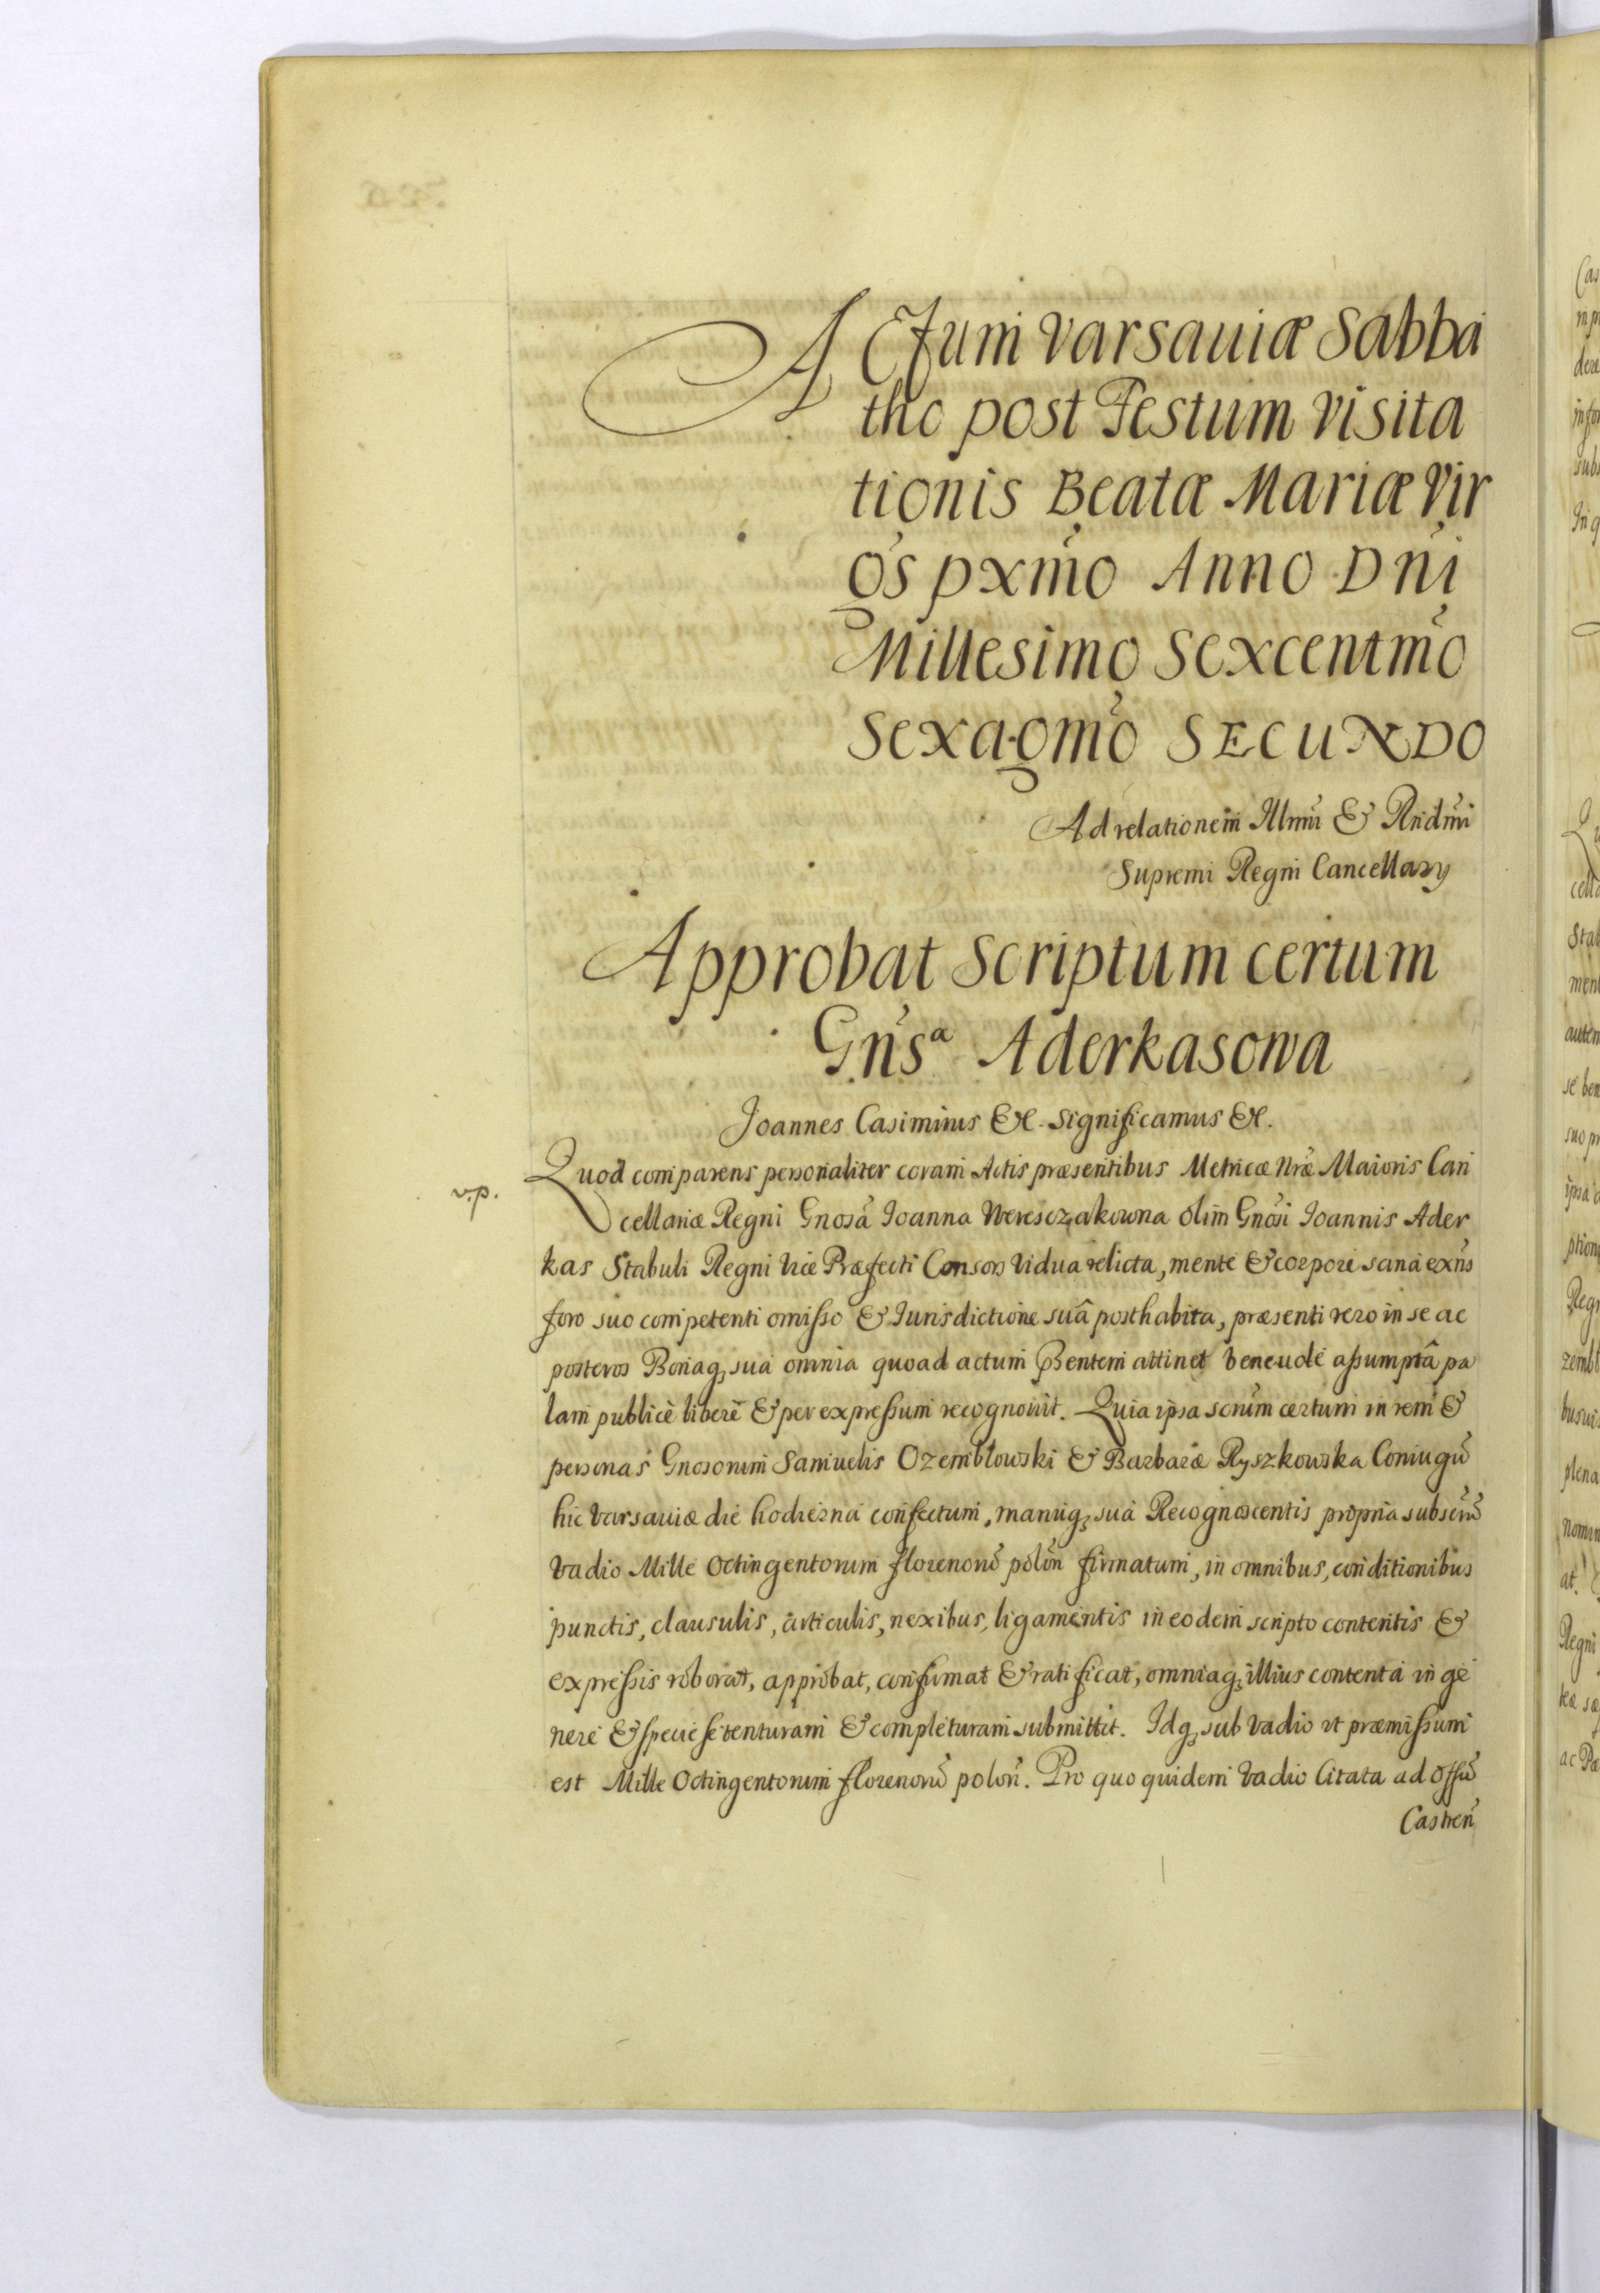 ACtum Varsauiæ Sabba
tho post Festum Visita
tionis Beatæ Mariæ Vir
g̃s pxm̃o Anno Dñi
Millesimo Sexcentm̃o
Sexagm̃o SECUNDO
Ad relationem Illm̃i & Rndm̃i
Supremi Regni Cancellarÿ
Approbat Scriptum certum
Gñsa Aderkasowa
Joannes Casimirus &c. Significamus &c.
v.p.
Quod comparens personaliter coram Actis præsentibus Metricæ Nræ Maioris Can
cellariæ Regni Gnosa Joanna Wereszczakowna olim Gnosi Joannis Ader
kas Stabuli Regni Vice Præfecti Consors Vidua relicta, mente & corpore sana exñs
foro suo competenti omisso & Jurisdictione suâ posthabita, præsenti vero in se ac
posteros Bonaq sua omnia quoad actum Pñtem attinet beneuole assumptâ pa
lam publicè liberè & per expressum recognouit. Quia ipsa scrũm certum in rem &
personas Gnosorum Samuelis Ozembłowski & Barbaræ Ryszkowska Coniugũ
hic Varsauiæ die hodierna confectum, manuq sua Recognoscentis propria subscrũ
Vadio Mille Octingentorum florenorũ polõn firmatum, in omnibus, conditionibus
punctis, clausulis, articulis, nexibus, ligamentis in eodem scripto contentis &
expressis roborat, approbat, confirmat & ratificat, omniaq illius contenta in ge
nere & specie se tenturam & completuram submittit. Idq sub Vadio vt præmissum
est Mille Octingentorum florenorũ polõn. Pro quo quidem Vadio Citata ad Offũ
Castreñ